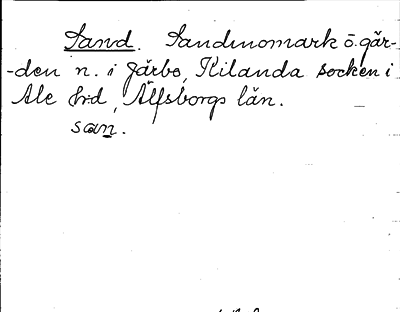 Sand. Sandmomark ö. gär-
-den n. i Järbo, Kilanda socken i
Ale hrd, Älfsborgs län.
san.